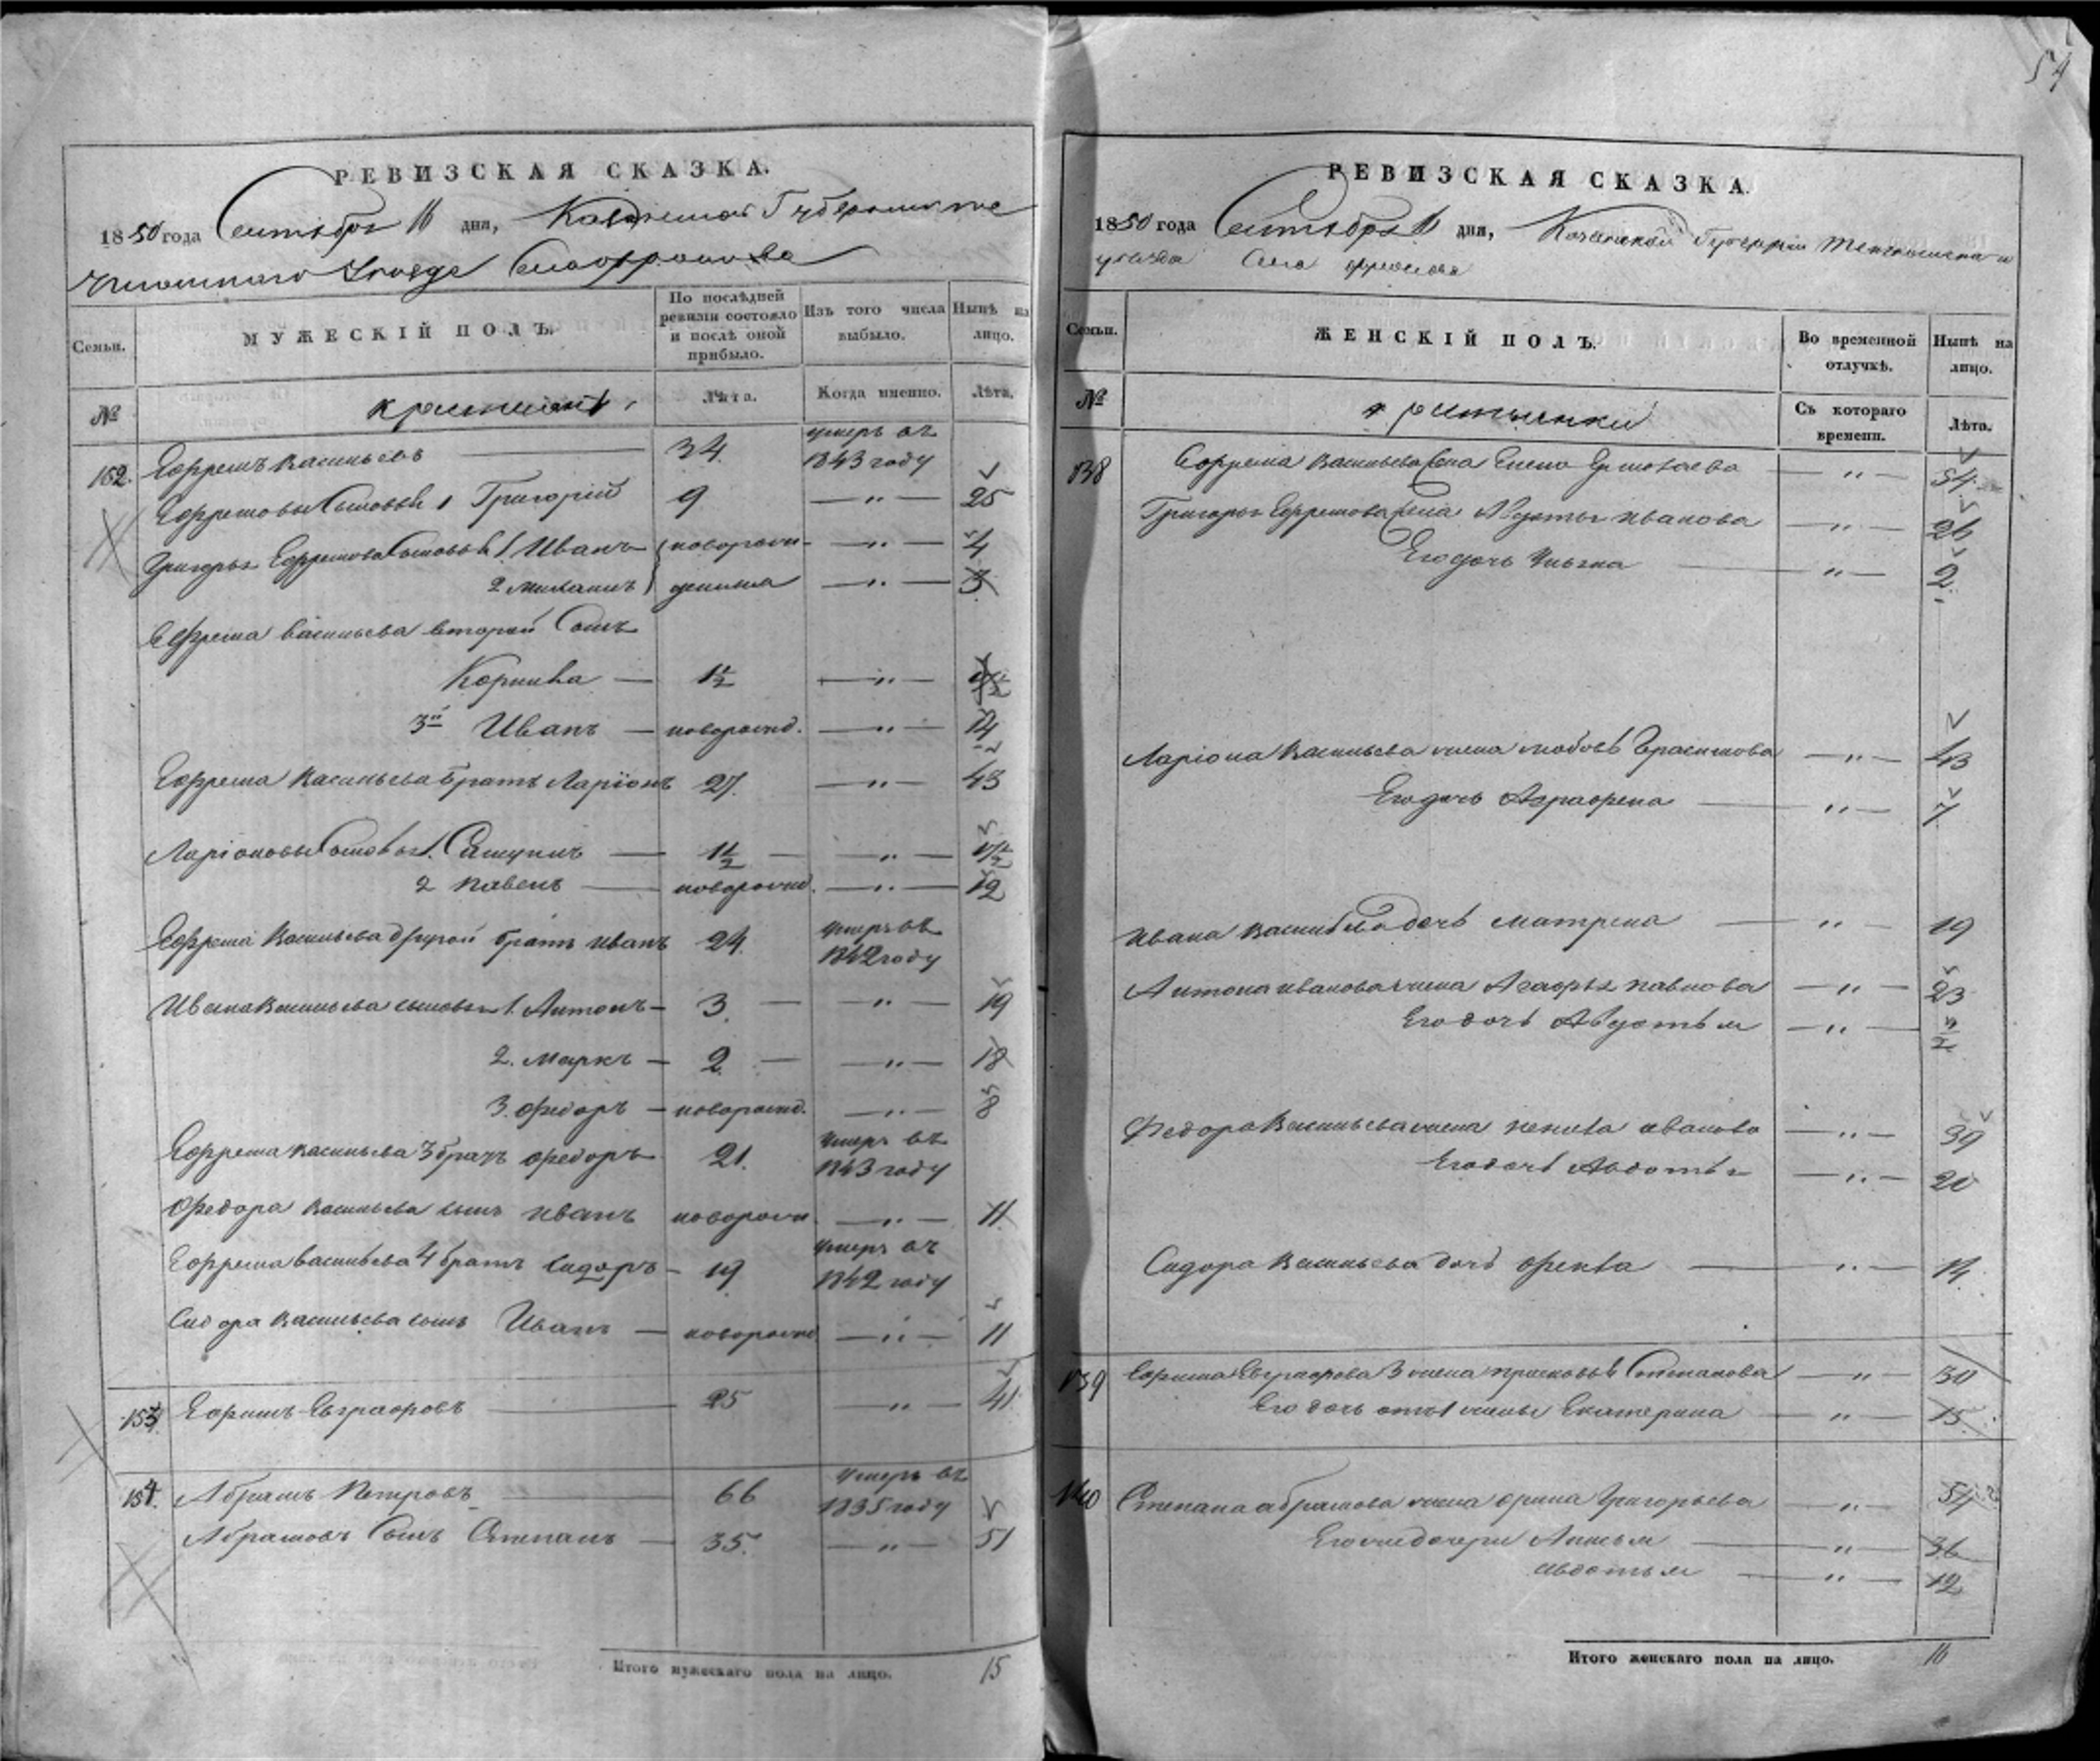 54
РЕВИЗСКАЯ СКАЗКА.
1850 года Сентября 16 дня, Казанской Губернии
Уѣзда Села
Семьи.
МУЖЕСКІЙ ПОЛЪ.
По послѣдней ревизіи состояло и послѣ оной прибыло.
Изъ того числа выбыло.
Нынѣ на лицо.
№
крестьянъ
Лѣта.
Когда именно.
Лѣта.
152. Ефремъ Васильевъ 34. умеръ въ 1843 году
Ефремовы Сыновья 1 Григорій 9 — " — 25
Григорья Ефремова Сыновья 1. Иванъ новорож- — " — 4
2 денные — " — 3
Ефрема Васильева второй Сынъ
Корнила — 1 1/2 — " —
3й Иванъ — новорожд. — " — 14
Ефрема Васильева братъ Ларіонъ 27. — " — 43
Ларіоновы Сыновья 1. — 1 1/2 — " — 17 1/2
2 Павелъ — новорожд. — " — 12
Ефрема Васильева другой братъ Иванъ 24. умеръ въ 1842 году
Ивана Васильева сыновья 1. Антонъ — 3. — " — 19
2. Маркъ — 2 — " — 18
3. Федоръ — новорожд. — " — 8
Ефрема Васильева 3 братъ Федоръ 21. умеръ въ 1843 году
Федора Васильева сынъ Иванъ новорож. — " — 11
Ефрема Васильева 4 братъ Сидоръ — 19 умеръ въ 1842 году
Сидора Васильева сынъ Иванъ — новорожд — " — 11
153. Ефимъ Евграфовъ 25 — " — 41
154. Абрамъ Петровъ 66 умеръ въ 1835 году
Абрамовъ Сынъ Степанъ — 35. — " — 51
Итого мужескаго пола на лицо. 15
РЕВИЗСКАЯ СКАЗКА.
1850 года Сентября 16 дня, Казанской Губерніи
уѣзда Села
Семьи.
ЖЕНСКІЙ ПОЛЪ.
Во временной отлучкѣ.
Нынѣ на лицо.
№
крестьянки
Съ котораго времени.
Лѣта.
138 Ефрема Васильева жена Елена — " — 54.
Григорья Ефремова жена Авдотья Иванова — " — 26
Его дочь — " — 2
Ларіона Васильева жена Любовь Герасимова — " — 43
Его дочь Аграфена — " — 7
Ивана Васильева дочь Матрена — " — 19
Антона Иванова жена Агафья Павлова — " — 23
Его дочь Авдотья — " —
Федора Васильева жена Иванова — " — 39
Его дочь Авдотья — " — 20
Сидора Васильева дочь Фекла — " — 14
139 Ефима Евграфова 3 жена Прасковья Степанова — " — 30
Его дочь отъ 1 жены Екатерина — " — 15
140 Степана Абрамова жена Орина Григорьева "
Его же дочери Анисья — " — 36
Авдотья — " — 12
Итого женскаго пола на лицо. 16